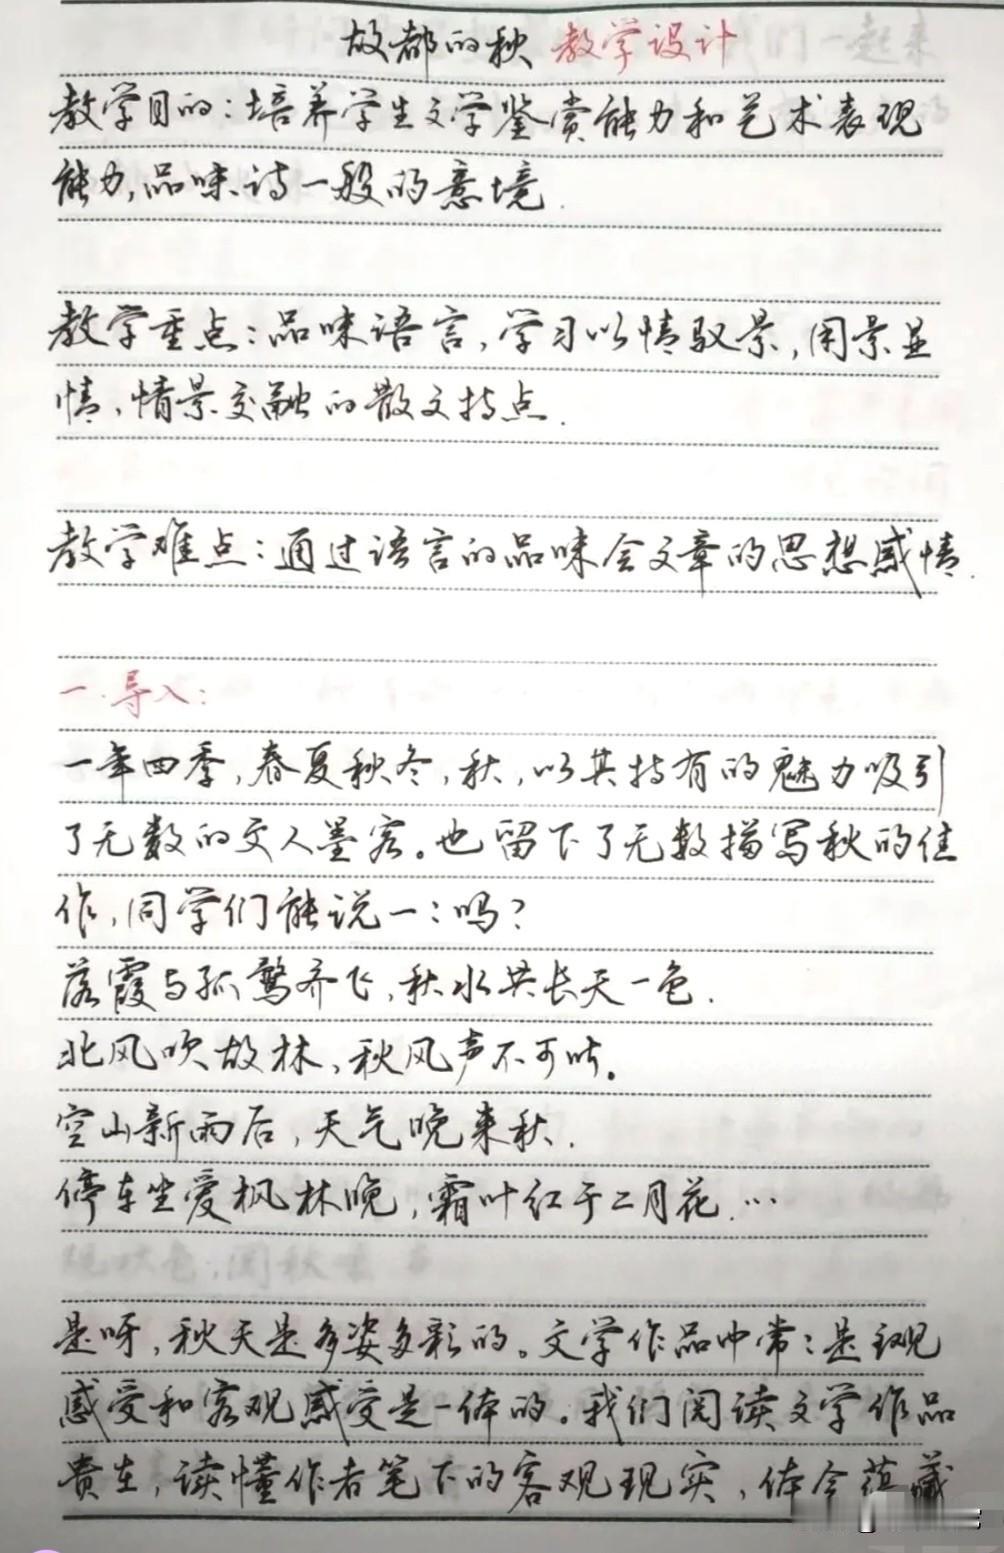 故都的秋 教学设计
教学目的：培养学生文学鉴赏能力和艺术表现
能力，品味诗一般的意境.
教学重点：品味语言，学习以情驭景，用景显
情、情景交融的散文特点.
教学难点：通过语言的品味会文章的思想感情.
一.导入：
一年四季，春夏秋冬，秋，以其持有的魅力吸引
了无数的文人墨客。也留下了无数描写秋的佳
作，同学们能说一：吗？
落霞与孤鹜齐飞，秋水共长天一色.
北风吹故林，秋风声不可听。
空山新雨后，天气晚来秋.
停车坐爱枫林晚，霜叶红于二月花.…
是呀，秋天是多姿多彩的。文学作品中常：是主观
感受和客观感受是一体的。我们阅读文学作品
贵在，读懂作者笔下的客观现实，体会蕴藏